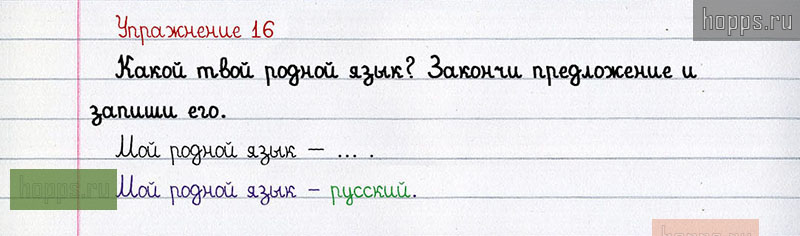 hopps.ru
Упражнение 16
Какой твой родной язык? Закончи предложение и
запиши его.
Мой родной язык — ... .
hopps.ru
Мой родной язык – русский.
hopps.ru